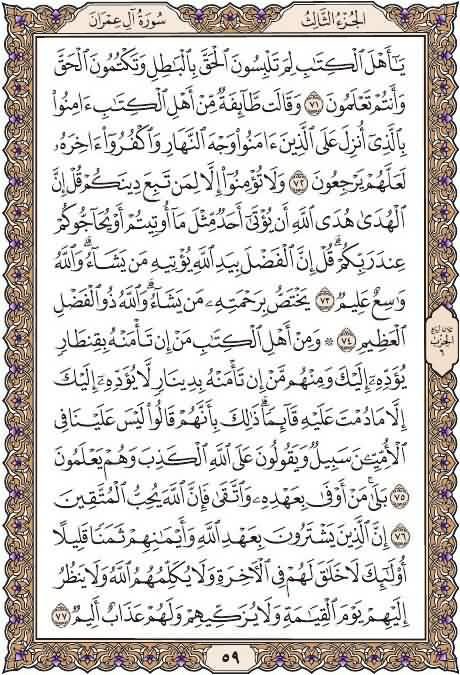 الجزء الثالث
سورة آل عمران
يَٰٓأَهْلَ ٱلْكِتَٰبِ لِمَ تَلْبِسُونَ ٱلْحَقَّ بِٱلْبَٰطِلِ وَتَكْتُمُونَ ٱلْحَقَّ
وَأَنتُمْ تَعْلَمُونَ ٧١ وَقَالَت طَّآئِفَةٌ مِّنْ أَهْلِ ٱلْكِتَٰبِ ءَامِنُوا۟
بِٱلَّذِىٓ أُنزِلَ عَلَى ٱلَّذِينَ ءَامَنُوا۟ وَجْهَ ٱلنَّهَارِ وَٱكْفُرُوٓا۟ ءَاخِرَهُۥ
لَعَلَّهُمْ يَرْجِعُونَ ٧٢ وَلَا تُؤْمِنُوٓا۟ إِلَّا لِمَن تَبِعَ دِينَكُمْ قُلْ إِنَّ
ٱلْهُدَىٰ هُدَى ٱللَّهِ أَن يُؤْتَىٰٓ أَحَدٌ مِّثْلَ مَآ أُوتِيتُمْ أَوْ يُحَآجُّوكُمْ
عِندَ رَبِّكُمْ ۗ قُلْ إِنَّ ٱلْفَضْلَ بِيَدِ ٱللَّهِ يُؤْتِيهِ مَن يَشَآءُ ۗ وَٱللَّهُ
وَٰسِعٌ عَلِيمٌ ٧٣ يَخْتَصُّ بِرَحْمَتِهِۦ مَن يَشَآءُ ۗ وَٱللَّهُ ذُو ٱلْفَضْلِ
ٱلْعَظِيمِ ٧٤ ۞ وَمِنْ أَهْلِ ٱلْكِتَٰبِ مَنْ إِن تَأْمَنْهُ بِقِنطَارٍ
يُؤَدِّهِۦٓ إِلَيْكَ وَمِنْهُم مَّنْ إِن تَأْمَنْهُ بِدِينَارٍ لَّا يُؤَدِّهِۦٓ إِلَيْكَ
إِلَّا مَا دُمْتَ عَلَيْهِ قَآئِمًا ۗ ذَٰلِكَ بِأَنَّهُمْ قَالُوا۟ لَيْسَ عَلَيْنَا فِى
ٱلْأُمِّيِّۦنَ سَبِيلٌ وَيَقُولُونَ عَلَى ٱللَّهِ ٱلْكَذِبَ وَهُمْ يَعْلَمُونَ
٧٥ بَلَىٰ مَنْ أَوْفَىٰ بِعَهْدِهِۦ وَٱتَّقَىٰ فَإِنَّ ٱللَّهَ يُحِبُّ ٱلْمُتَّقِينَ
٧٦ إِنَّ ٱلَّذِينَ يَشْتَرُونَ بِعَهْدِ ٱللَّهِ وَأَيْمَٰنِهِمْ ثَمَنًا قَلِيلًا
أُو۟لَٰٓئِكَ لَا خَلَٰقَ لَهُمْ فِى ٱلْءَاخِرَةِ وَلَا يُكَلِّمُهُمُ ٱللَّهُ وَلَا يَنظُرُ
إِلَيْهِمْ يَوْمَ ٱلْقِيَٰمَةِ وَلَا يُزَكِّيهِمْ وَلَهُمْ عَذَابٌ أَلِيمٌ ٧٧
الحزب
٦
٥٩